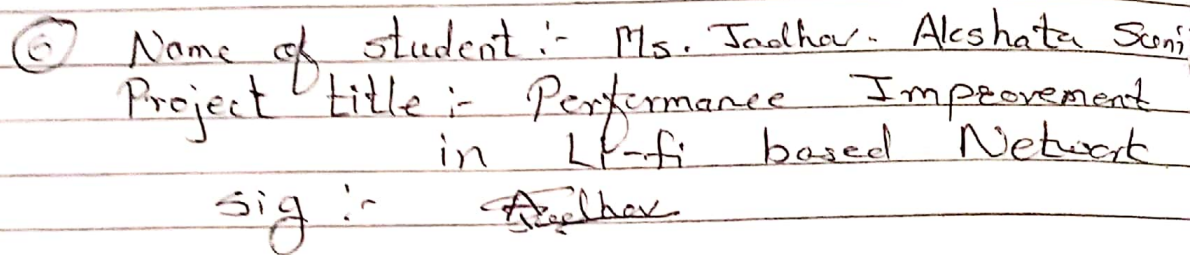 6 Name of student :- Ms. Jadhav. Akshata Suni
Project title :- Performance Improvement
in Li-fi based Network
sig :- Jadhav